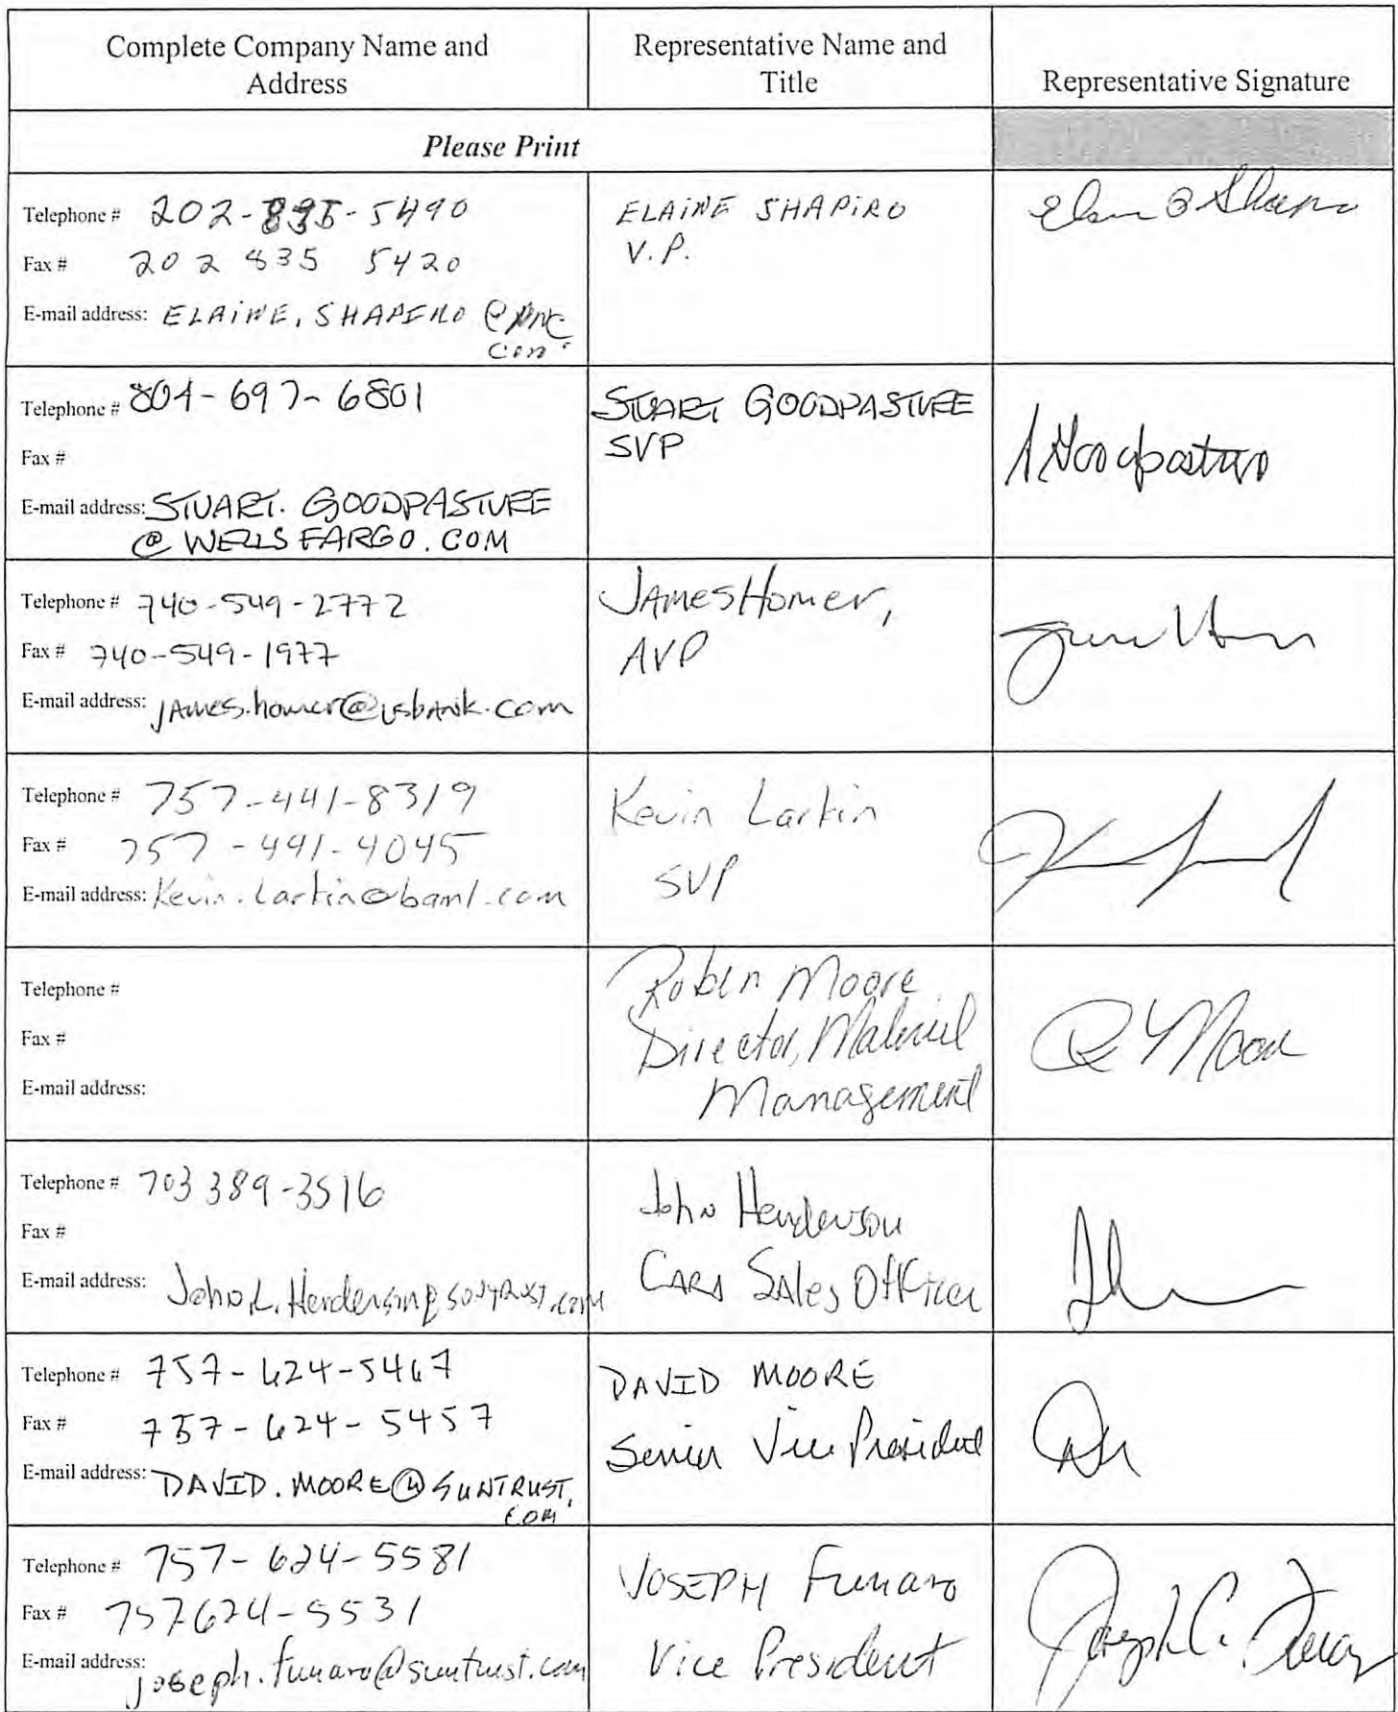 Complete Company Name and
Address
Representative Name and
Title
Representative Signature
Please Print
Telephone # 202-835-5490
Fax # 202 835 5420
E-mail address: ELAINE.SHAPIRO @PNC
COM
ELAINE SHAPIRO
V.P.
Telephone # 804-697-6801
Fax #
E-mail address: STUART. GOODPASTURE
@ WELLS FARGO.COM
STUART GOODPASTURE
SVP
Telephone # 740-549-2772
Fax # 740-549-1977
E-mail address: JAMES.homer@usbank.com
JAMES Homer,
AVP
Telephone # 757-441-8319
Fax # 757-441-4045
E-mail address: Kevin.Larkin@baml.com
Kevin Larkin
SVP
Telephone #
Fax #
E-mail address:
Moore
Director, Materiel
Management
Telephone # 703 389-3516
Fax #
E-mail address: John.L.Henderson@suntrust.com
John Henderson
CARD SALES Officer
Telephone # 757-624-5467
Fax # 757-624-5457
E-mail address: DAVID.MOORE@SUNTRUST.
COM
DAVID MOORE
Senior Vice President
Telephone # 757-624-5581
Fax # 757624-5531
E-mail address: joseph.funaro@suntrust.com
JOSEPH Funaro
Vice President